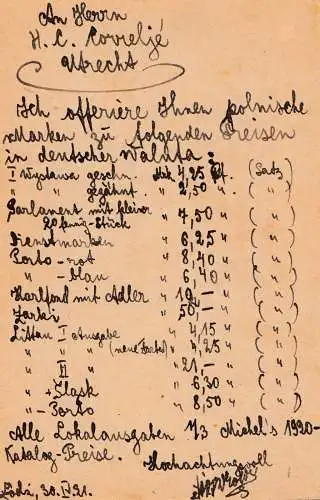 An Herrn
H. C. Covieljé
Utrecht
Ich offeriere Ihnen polnische
Marken zu folgenden Preisen
in deutscher Waluta:
I Wystawa geschn. Mk. 4,25 Pf. (Satz)
" " gezähnt. " 2,50 " ( " )
Parlament mit kleiner
20 fenig-Stück " 7,50 " ( " )
Dienstmarken " 6,25 " ( " )
Porto - rot " 8,40 " ( " )
" - blau " 6,40 " ( " )
mit Adler " 10,— " ( " )
" 50,— " ( " )
Littau I Ausgabe " 4,15 " ( " )
" " " (neue Farbe) " 4,25 " ( " )
" II " " 21,— " ( " )
" + Śląsk " 6,30 " ( " )
" - Porto " 8,50 " ( " )
Alle Lokalausgaben 1/3 Michel's 1920-
Katalog-Preise.
Hochachtungsvoll
Łódź, 30. 21.